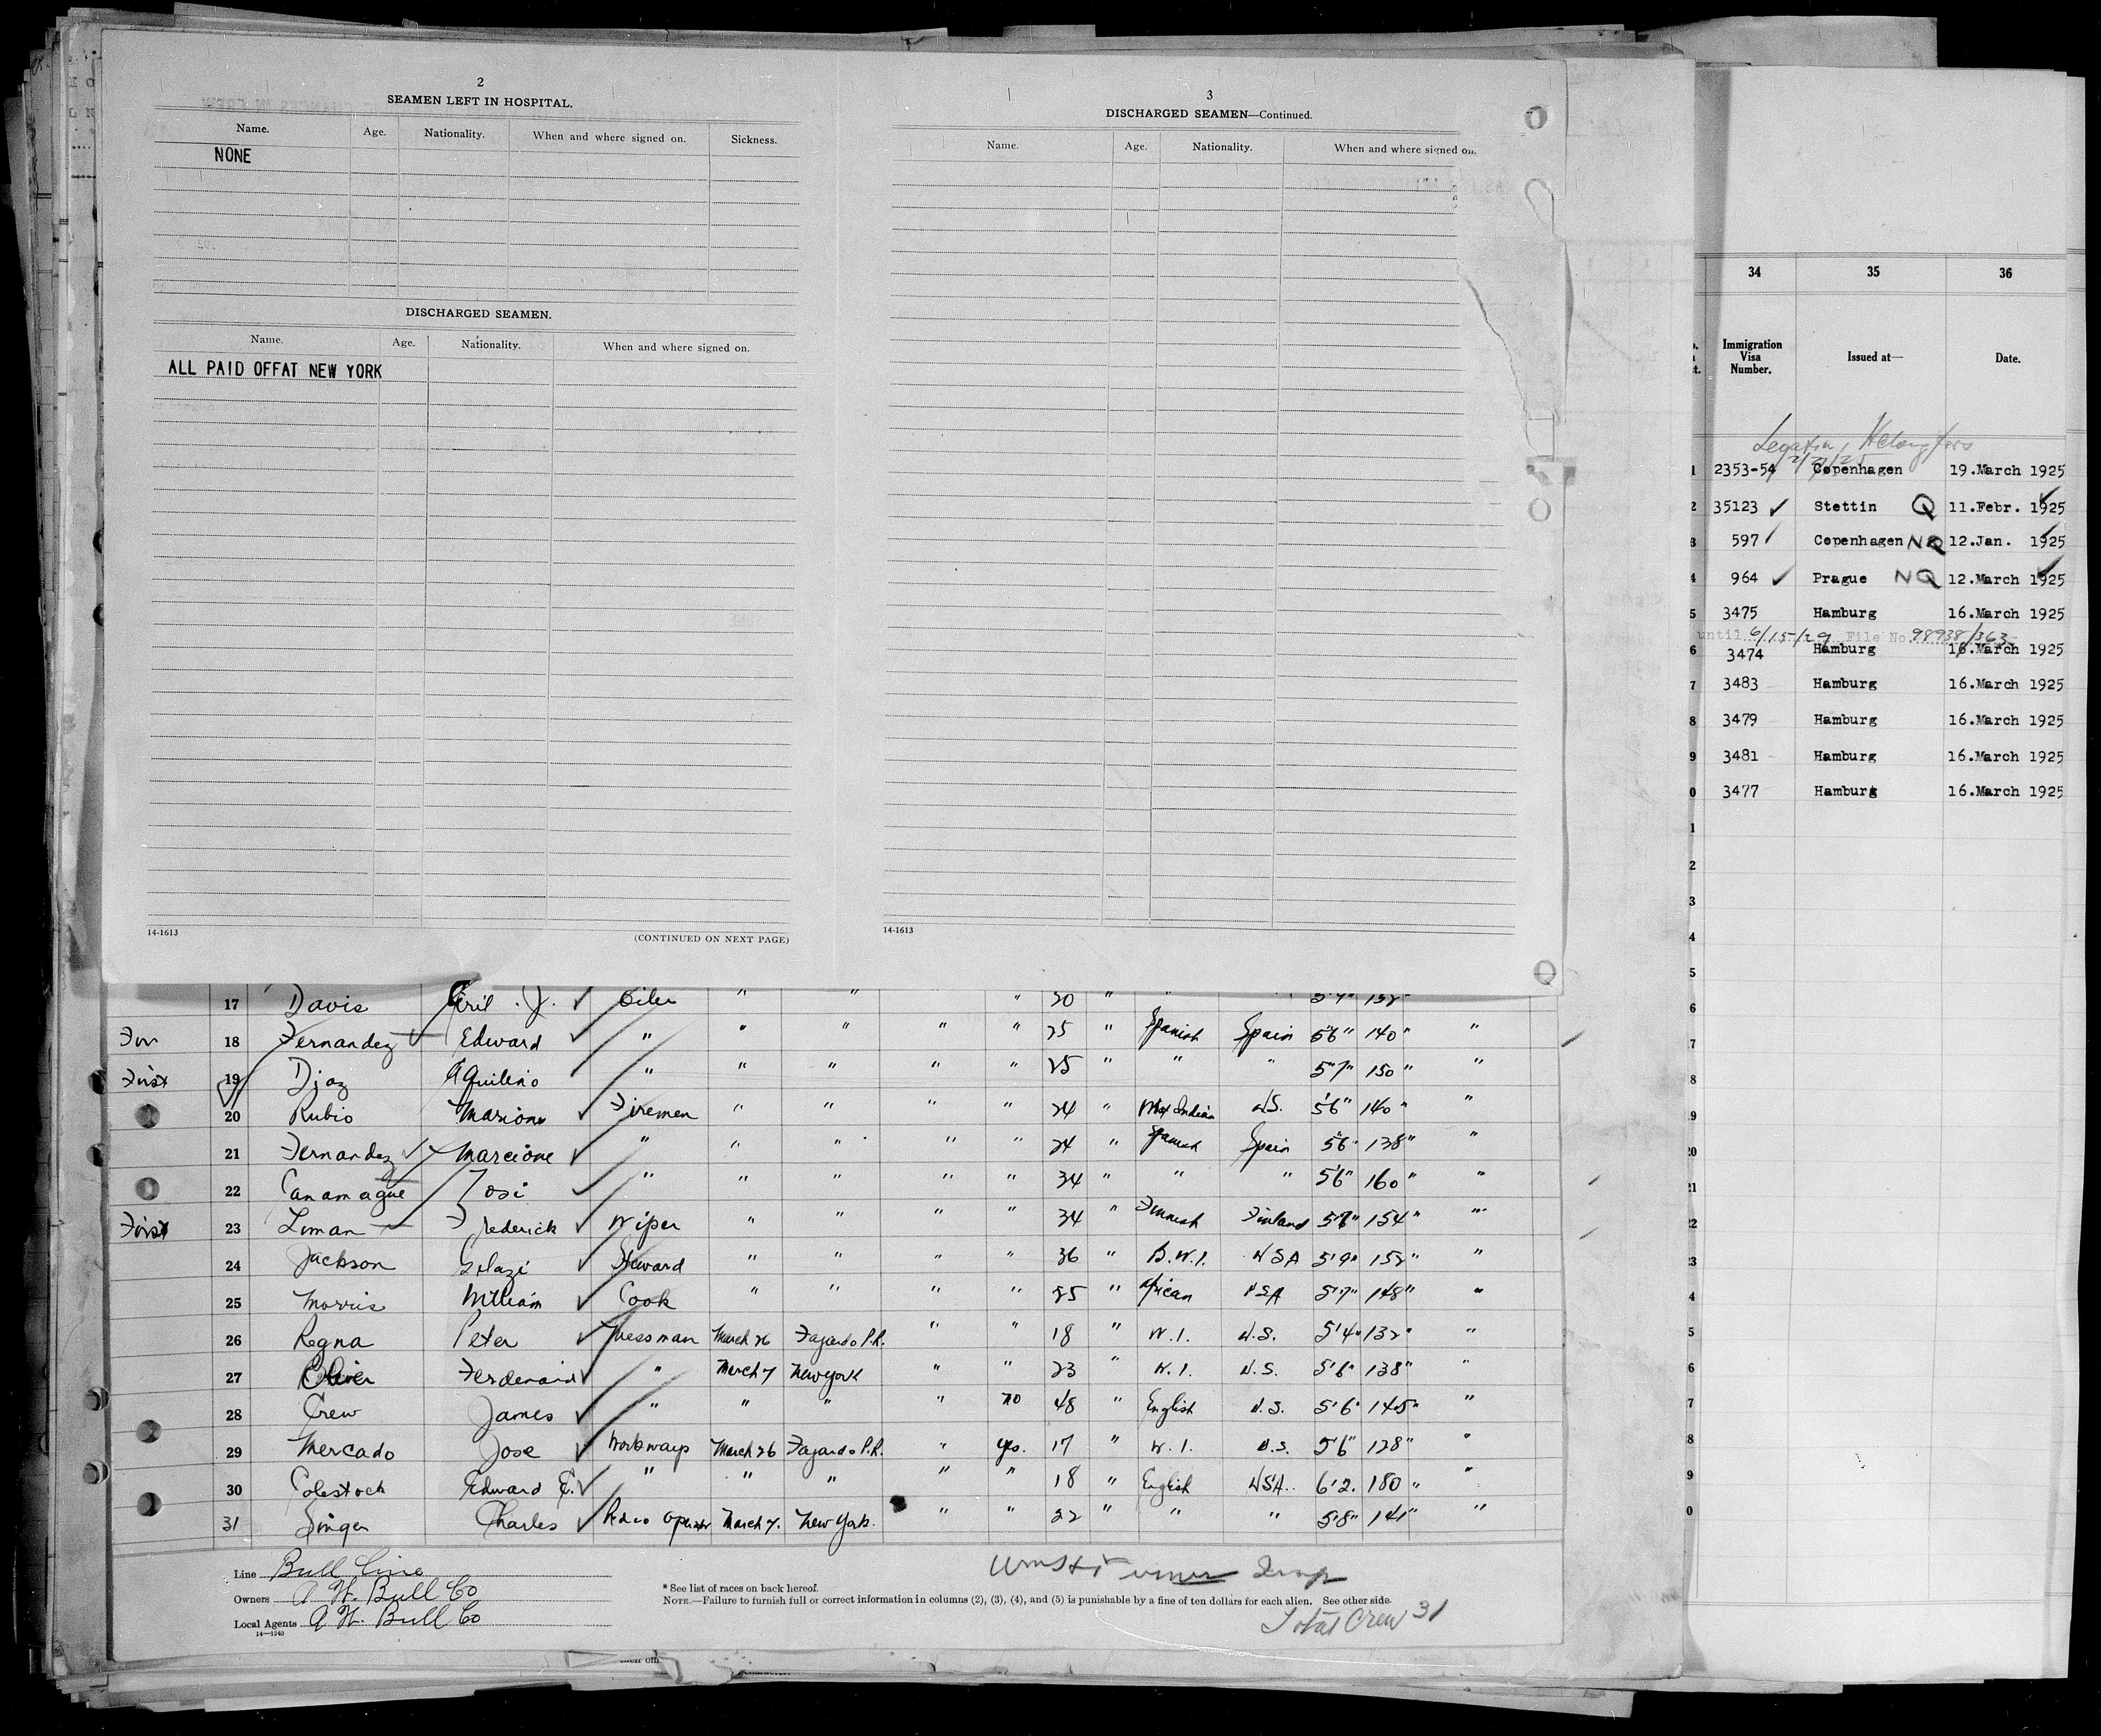 2
SEAMEN LEFT IN HOSPITAL.
Name. Age. Nationality. When and where signed on. Sickness.
NONE
DISCHARGED SEAMEN.
Name. Age. Nationality. When and where signed on.
ALL PAID OFFAT NEW YORK
14-1613
(CONTINUED ON NEXT PAGE)
3
DISCHARGED SEAMEN—Continued.
Name. Age. Nationality. When and where signed on.
14-1613
34 35 36
Immigration Visa Number. Issued at— Date.
1 2353-54 Copenhagen 19.March 1925
2 35123 ✓ Stettin Q 11.Febr. 1925
3 597 Copenhagen NQ 12.Jan. 1925
4 964 ✓ Prague NQ 12.March 1925
5 3475 Hamburg 16.March 1925
until 6/15/29 File No. 98938/363
6 3474 Hamburg 16.March 1925
7 3483 Hamburg 16.March 1925
8 3479 Hamburg 16.March 1925
9 3481 Hamburg 16.March 1925
0 3477 Hamburg 16.March 1925
1
2
3
4
5
6
7
8
9
20
21
22
23
4
5
6
7
8
9
0
17 Davis J. ✓ Oiler " " " 20 " " "
18 Fernandez Edward ✓ " " " " " 25 " Spanish Spain 5'6" 140 " "
19 Diaz Aquilino " " " " " 25 " " " 5'7" 150 " "
20 Rubio ✓ Firemen " " " " 24 " U.S. 5'6" 140 " "
21 Fernandez ✓ Marcione ✓ " " " " " 24 " Spanish Spain 5'6" 138 " "
22 Canamague Josi ✓ " " " " " 34 " " " 5'6" 160 " "
23 Liman Frederick ✓ Wiper " " " " 34 " Finnish Finland 154 " "
24 Jackson ✓ Steward " " " " 36 " B.W.I. USA 5'9" 152 " "
25 Morris William ✓ Cook " " " " " African USA 5'7" 148 " "
26 Regna Peter ✓ Messman March 26 Fajardo P.R. " " 18 " W.I. U.S. 5'4" 132 " "
27 Ferdenaird ✓ " March 7 New York " " 23 " W.I. U.S. 5'6" 138 " "
28 Crew James ✓ " " " " no 48 " English U.S. 5'6" 145 " "
29 Mercado Jose ✓ Workways March 26 Fajardo P.R. " yes. 17 " W.I. U.S. 5'6" 128 " "
30 Colestock Edward E. ✓ " " " " " 18 " English USA. 6'2. 180 " "
31 Singer Charles ✓ Radio Operator March 7. New York. " " 22 " " " 5'8" 141 " "
Line Bull Line
Owners A H. Bull Co
Local Agents A H. Bull Co
14—1240
* See list of races on back hereof.
NOTE.—Failure to furnish full or correct information in columns (2), (3), (4), and (5) is punishable by a fine of ten dollars for each alien. See other side.
Total Crew 31